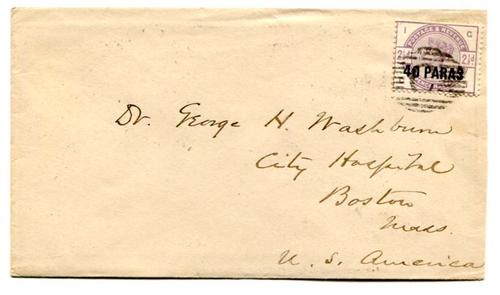 I G
POSTAGE & REVENUE
2½d 2½d
40 PARAS
Dr. George H. Washburn
City Hospital
Boston
Mass.
U. S. America